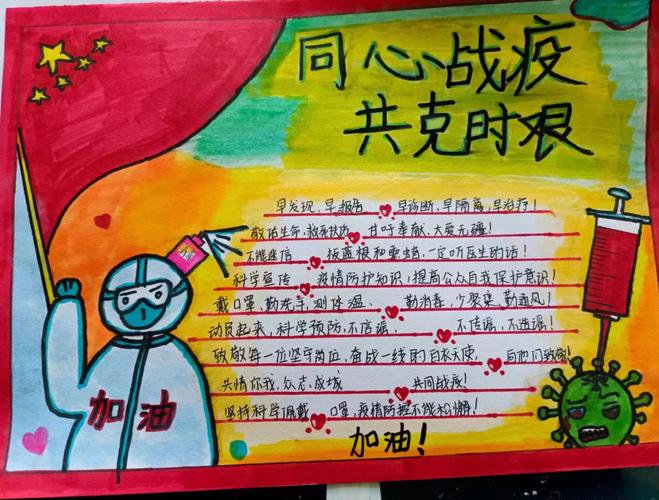 同心战疫
共克时艰
早发现、早报告 早诊断、早隔离、早治疗！
敬佑生命，救死扶伤 甘于奉献，大爱无疆！
不能迷信 板蓝根和 一定听医生的话！
科学宣传 疫情防护知识，提高公众自我保护意识！
戴口罩、勤洗手、测体温、 勤消毒，少聚集，勤通风！
动员起来，科学预防，不信谣， 不传谣，不造谣！
致敬每一位坚守岗位，奋战一线的白衣天使， 向他们致敬！
共情你我，众志成城 共同战疫！
坚持科学佩戴 口罩，疫情防控不能松懈！
加油！
加油